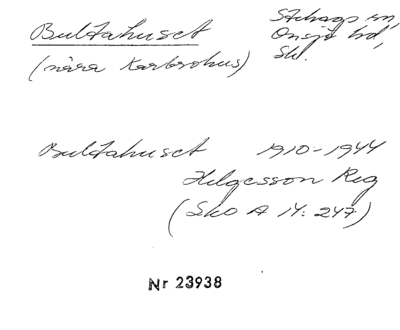 Bultahuset
Stehags sn,
Onsjö hd,
Sk.
(nära Karlsrohus)
Bultahuset 1910-1944
Helgesson Reg
(Sko A 14: 247)
Nr 23938